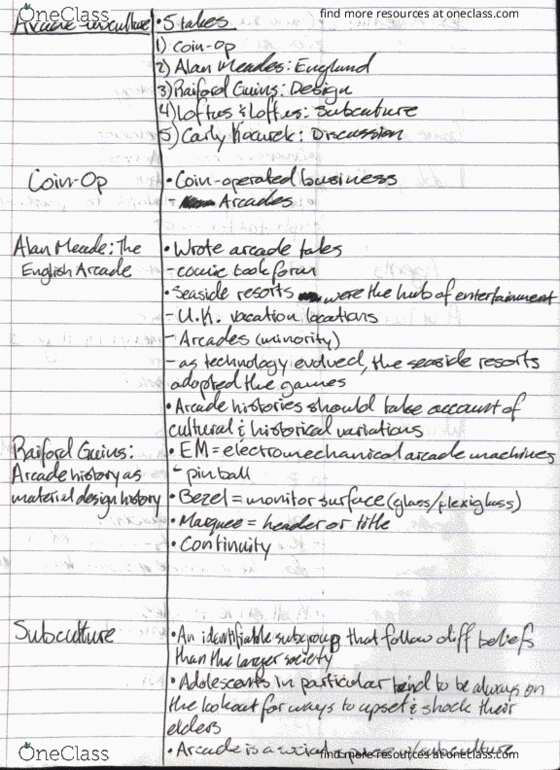 OneClass
find more resources at oneclass.com
Stakes
1) Coin-Op
2) Alan Meades: England
3) Raiford Guins: Design
4) Loftus & Loftus: Subculture
5) Carly Kocurek: Discussion
Coin-Op
• Coin-operated business
- Arcades
Alan Meade: The
English Arcade
• Wrote arcade tales
- comic book form
• Seaside resorts were the hub of entertainment
- U.K. vacation locations
- Arcades (minority)
- as technology evolved, the seaside resorts
adopted the games
• Arcade histories should take account of
cultural & historical variations
Raiford Guins:
Arcade history as
material design history
• EM = electromechanical arcade machines
- pinball
• Bezel = monitor surface (glass/plexiglass)
• Marquee = header or title
• Continuity
Subculture
• An identifiable subgroup that follow diff beliefs
than the larger society
• Adolescents in particular tend to be always on
the lookout for ways to upset & shock their
elders
• Arcade is a
OneClass
find more resources at oneclass.com